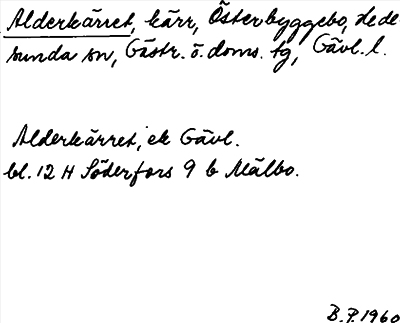 Alderkärret, kärr, Österbyggebo, Hede
sunda sn, Gästr. ö. doms. tg, Gävl. l.
Alderkärret, ek Gävl.
bl. 12 H Söderfors 9 b Mälbo.
B.P. 1960